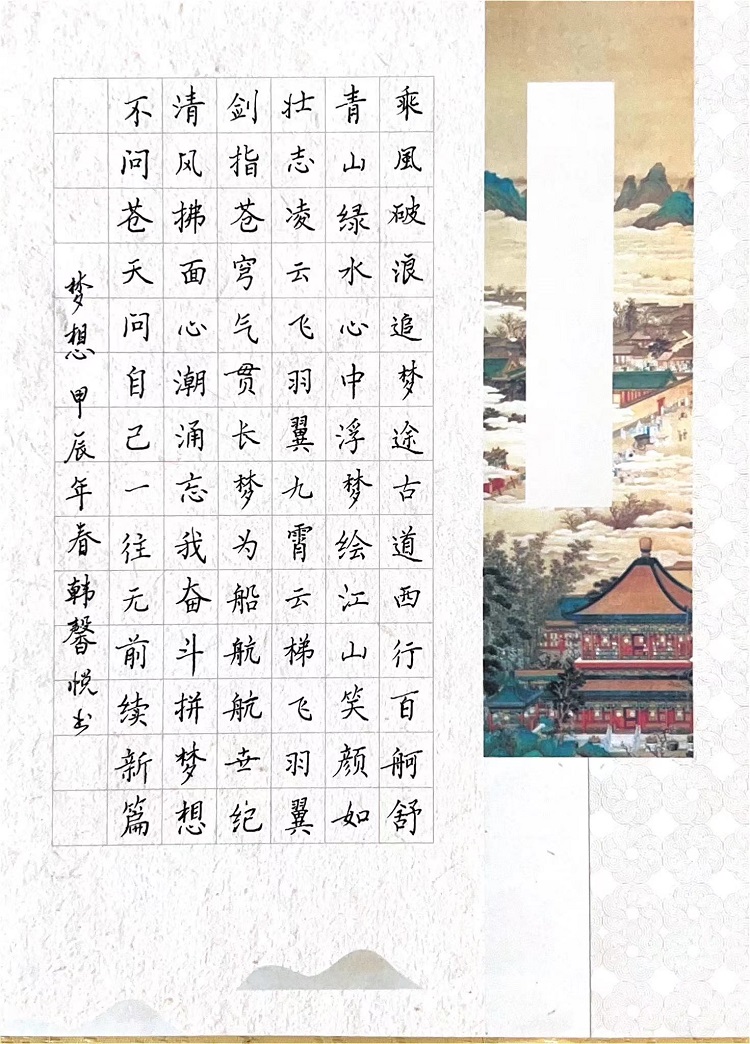 乘風破浪追梦途古道西行百舸舒
青山绿水心中浮梦绘江山笑颜如
壮志凌云飞羽翼九霄云梯飞羽翼
剑指苍穹气贯长梦为船航航世纪
清风拂面心潮涌忘我奋斗拼梦想
不问苍天问自己一往无前续新篇
梦想甲辰年春韩馨悦书